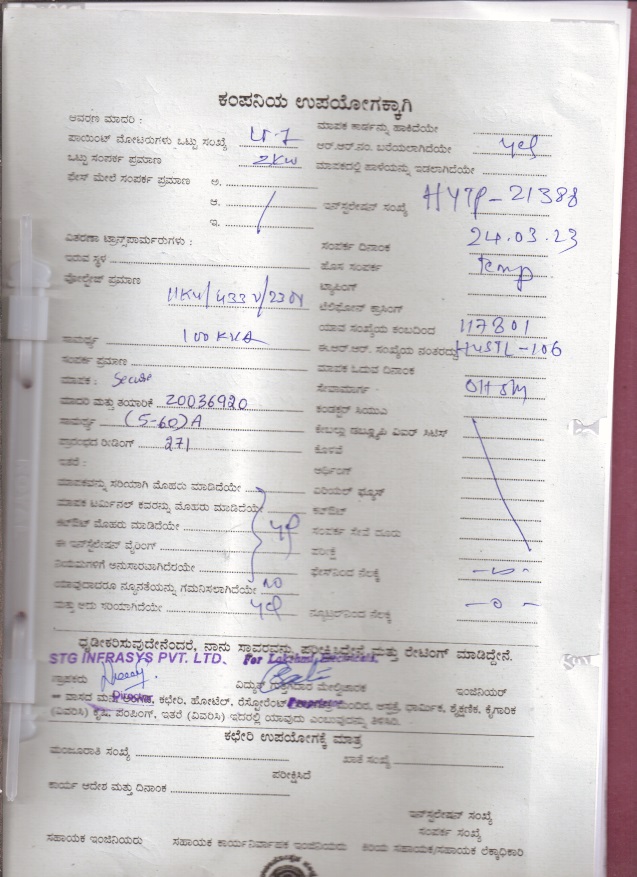 ಕಂಪನಿಯ ಉಪಯೋಗಕ್ಕಾಗಿ
ಆವರಣ ಮಾದರಿ :
ಮಾಪಕ ಕಾರ್ಡನ್ನು ಹಾಕಿದೆಯೇ
ಪಾಯಿಂಟ್ ಮೋಟರುಗಳು ಒಟ್ಟು ಸಂಖ್ಯೆ LT-7
ಆರ್.ಆರ್.ನಂ. ಬರೆಯಲಾಗಿದೆಯೇ yes
ಒಟ್ಟು ಸಂಪರ್ಕ ಪ್ರಮಾಣ 2KW
ಮಾಪಕದಲ್ಲಿ ಹಾಳೆಯನ್ನು ಇಡಲಾಗಿದೆಯೇ
ಫೇಸ್ ಮೇಲೆ ಸಂಪರ್ಕ ಪ್ರಮಾಣ ಅ.
ಆ.
ಇನ್‌ಸ್ಟಲೇಷನ್ ಸಂಖ್ಯೆ HYTP-21388
ಇ.
ವಿತರಣಾ ಟ್ರಾನ್ಸ್‌ಫಾರ್ಮರುಗಳು :
ಸಂಪರ್ಕ ದಿನಾಂಕ 24.03.23
ಇರುವ ಸ್ಥಳ
ಹೊಸ ಸಂಪರ್ಕ Temp
ವೋಲ್ಟೇಜ್ ಪ್ರಮಾಣ 11KV/433V/230V
ಟ್ಯಾಪಿಂಗ್
ಟೆಲಿಫೋನ್ ಕ್ರಾಸಿಂಗ್
ಯಾವ ಸಂಖ್ಯೆಯ ಕಂಬದಿಂದ 117801
ಸಾಮರ್ಥ್ಯ 100 KVA
ಈ.ಆರ್.ಆರ್. ಸಂಖ್ಯೆಯ ನಂತರದ್ದು HUSTL-106
ಸಂಪರ್ಕ ಪ್ರಮಾಣ
ಮಾಪಕ ಓದುವ ದಿನಾಂಕ
ಮಾಪಕ : Secure
ಸೇವಾಮಾರ್ಗ OH SM
ಮಾದರಿ ಮತ್ತು ತಯಾರಿಕೆ 20036920
ಕಂಡಕ್ಟರ್ ಸಿಯುಎ
ಸಾಮರ್ಥ್ಯ (5-60)A
ಕೇಬಲ್ಲು ಡಬ್ಲ್ಯೂಪಿ ವಿಐಆರ್ ಸಿಟಿಸ್
ಪ್ರಾರಂಭದ ರೀಡಿಂಗ್ 271
ಕೊಳವೆ
ಇತರೆ :
ಅರ್ಥಿಂಗ್
ಮಾಪಕವನ್ನು ಸರಿಯಾಗಿ ಮೊಹರು ಮಾಡಿದೆಯೇ
ಏರಿಯಲ್ ಫ್ಯೂಸ್
ಮಾಪಕ ಟರ್ಮಿನಲ್ ಕವರನ್ನು ಮೊಹರು ಮಾಡಿದೆಯೇ
ಕಟ್‌ಔಟ್
ಕಟ್‌ಔಟ್ ಮೊಹರು ಮಾಡಿದೆಯೇ yes
ಸಂಪರ್ಕ ಸೇವೆ ದೂರು
ಈ ಇನ್‌ಸ್ಟಲೇಷನ್ ವೈರಿಂಗ್
ಪರೀಕ್ಷೆ
ನಿಯಮಗಳಿಗೆ ಅನುಸಾರವಾಗಿದೆಯೇ
ಫೇಸ್‌ನಿಂದ ನೆಲಕ್ಕೆ
ಯಾವುದಾದರೂ ನ್ಯೂನತೆಯನ್ನು ಗಮನಿಸಲಾಗಿದೆಯೇ NO
ಮತ್ತು ಅದು ಸರಿಯಾಗಿದೆಯೇ yes
ನ್ಯೂಟ್ರಲ್‌ನಿಂದ ನೆಲಕ್ಕೆ -0-
ಧೃಡೀಕರಿಸುವುದೇನೆಂದರೆ, ನಾನು ಸ್ಥಾವರವನ್ನು ಪರೀಕ್ಷಿಸಿದ್ದೇನೆ ಮತ್ತು ರೇಟಿಂಗ್ ಮಾಡಿದ್ದೇನೆ.
STG INFRASYS PVT. LTD. For Lakshmi Electricals.
ಗ್ರಾಹಕರು
ವಿದ್ಯುತ್ ಗುತ್ತಿಗೆದಾರ ಮೇಲ್ವಿಚಾರಕ
ಇಂಜಿನಿಯರ್
Director
Proprietor
ವಾಸದ ಮನೆ, ಅಂಗಡಿ, ಕಛೇರಿ, ಹೋಟೆಲ್, ರೆಸ್ಟೋರೆಂಟ್ ಮಂದಿರ, ಆಸ್ಪತ್ರೆ, ಧಾರ್ಮಿಕ, ಶೈಕ್ಷಣಿಕ, ಕೈಗಾರಿಕ
(ವಿವರಿಸಿ) ಕೃಷಿ, ಪಂಪಿಂಗ್, ಇತರೆ (ವಿವರಿಸಿ) ಇದರಲ್ಲಿ ಯಾವುದು ಎಂಬುವುದನ್ನು ತಿಳಿಸಿರಿ.
ಕಛೇರಿ ಉಪಯೋಗಕ್ಕೆ ಮಾತ್ರ
ಮಂಜೂರಾತಿ ಸಂಖ್ಯೆ
ಖಾತೆ ಸಂಖ್ಯೆ
ಪರೀಕ್ಷಿಸಿದೆ
ಕಾರ್ಯ ಆದೇಶ ಮತ್ತು ದಿನಾಂಕ
ಇನ್‌ಸ್ಟಲೇಷನ್ ಸಂಖ್ಯೆ
ಸಂಪರ್ಕ ಸಂಖ್ಯೆ
ಸಹಾಯಕ ಇಂಜಿನಿಯರು ಸಹಾಯಕ ಕಾರ್ಯನಿರ್ವಾಹಕ ಇಂಜಿನಿಯರು ಕಿರಿಯ ಸಹಾಯಕ/ಸಹಾಯಕ ಲೆಕ್ಕಾಧಿಕಾರಿ